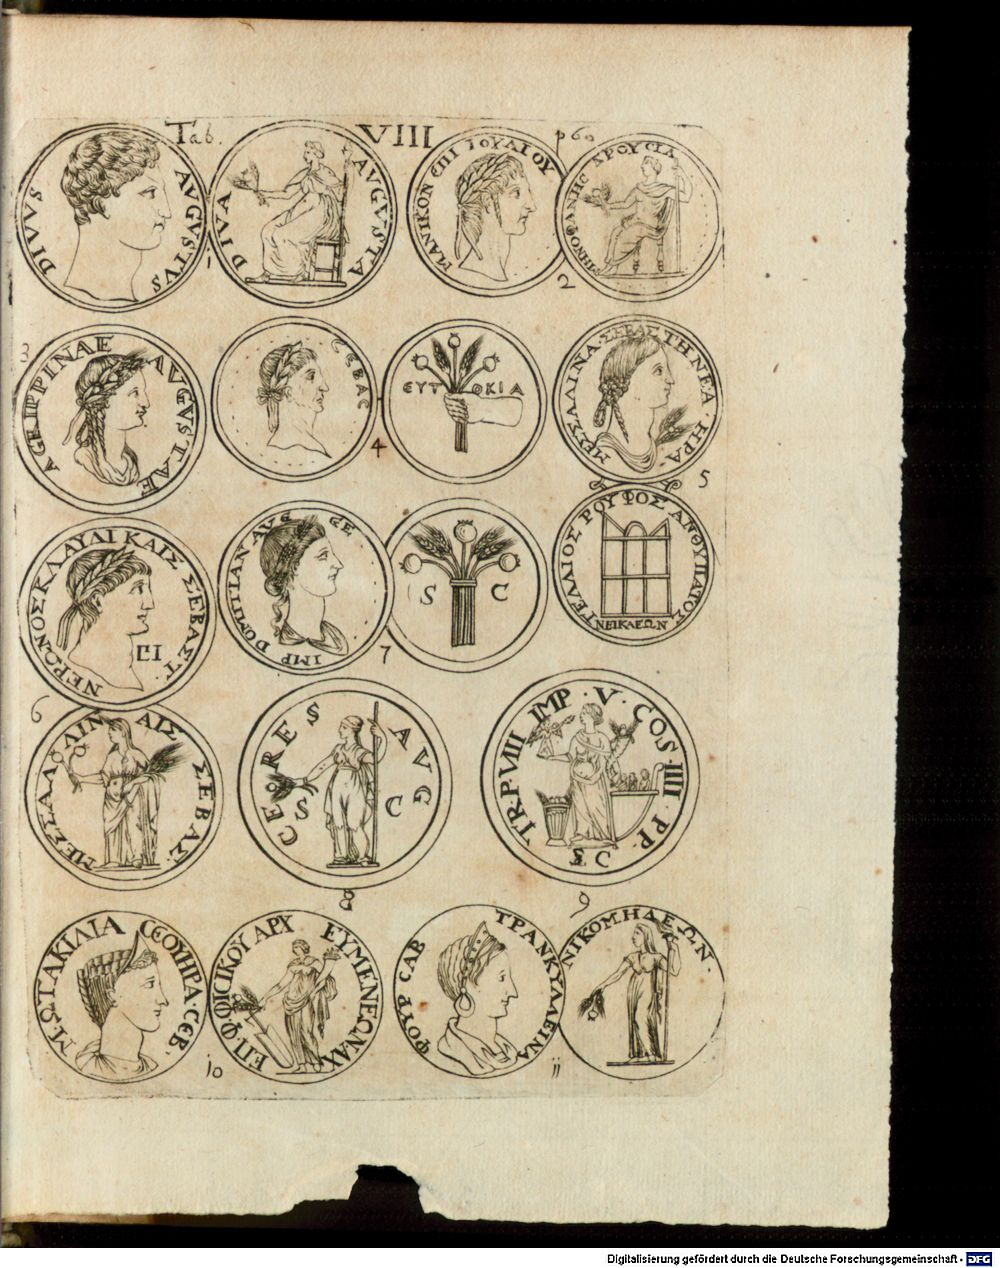 Tab. VIII p 60
DIVVS AVGVSTVS
DIVA AVGVSTA
1
ΜΑΝΙΚΟΝ ΕΠΙ ΙΟΥΛΙΟΥ
ΜΗΝΟΦΑΝΗϹ
2
3
AGRIPPINAE AVGVSTAE
ϹΕΒΑϹ
ΕΥΤ ΟΚΙΑ
4
ΜΕΣΣΑΛΙΝΑ·ΣΕΒΑΣΤΗ ΝΕΑ·ΗΡΑ·
5
ΝΕΡΩΝΟΣ ΚΛΑΥΔΙ ΚΑΙΣ ΣΕΒΑΣΤ
6
IMP DOMITIAN AVG GE
S C
7
ΓΕΛΛΙΟΣ ΡΟΥΦΟΣ ΑΝΘΥΠΑΤΟΣ
ΝΕΙΚΑΕΩΝ
ΣΕΒΑΣ
CERES AVG
S C
8
TR·P·VIII IMP·V·COS·IIII·PP·
S C
9
Μ·ΩΤΑΚΙΛΙΑ ϹΕΟΥΗΡΑ·ϹΕΒ·
ΑΡΧ ΕΥΜΕΝΕΩΝ ΑΧ
10
ΦΟΥΡ ϹΑΒ ΤΡΑΝΚΥΛΛΕΙΝΑ
ΝΙΚΟΜΗΔΕΩΝ·
11
Digitalisierung gefördert durch die Deutsche Forschungsgemeinschaft - DFG